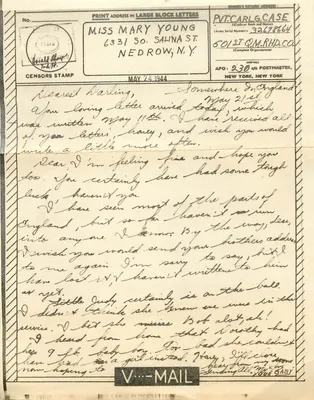 PRINT ADDRESS IN LARGE BLOCK LETTERS
MISS MARY YOUNG
6331 SO. SALINA ST.
NEDROW, N.Y.
CENSORS STAMP
PVT CARL G. CASE
32698664
501ST Q.M.RHD.CO
APO: 230 c/o POSTMASTER,
NEW YORK, NEW YORK
MAY 24 1944
Somewhere In England
May 21st
Dearest Darling,
Your loving letter arrived today, which
was written May 11th. I have received all
of your letters, honey, and wish you would
write a little more often.
Dear I'm feeling fine and hope you
too. You certainly have had some tough
luck, haven't you
I have seen most of the parts of
England, but so far haven't run
into anyone I know. By the way, dear,
I wish you would send your brothers address
to me again I'm sorry to say, but I
have lost it & haven't written to him
as yet.
Little Judy certainly is on the ball
I didn't think she knew we were in the
service. I bet she misses Bob alot, ph!
I heard from home that Dorothy had
her 9 lb. baby. Too bad she couldn't
have had a girl instead. Honey, I'll close
now hoping to hear from you soon
Sending all my love
V···—MAIL